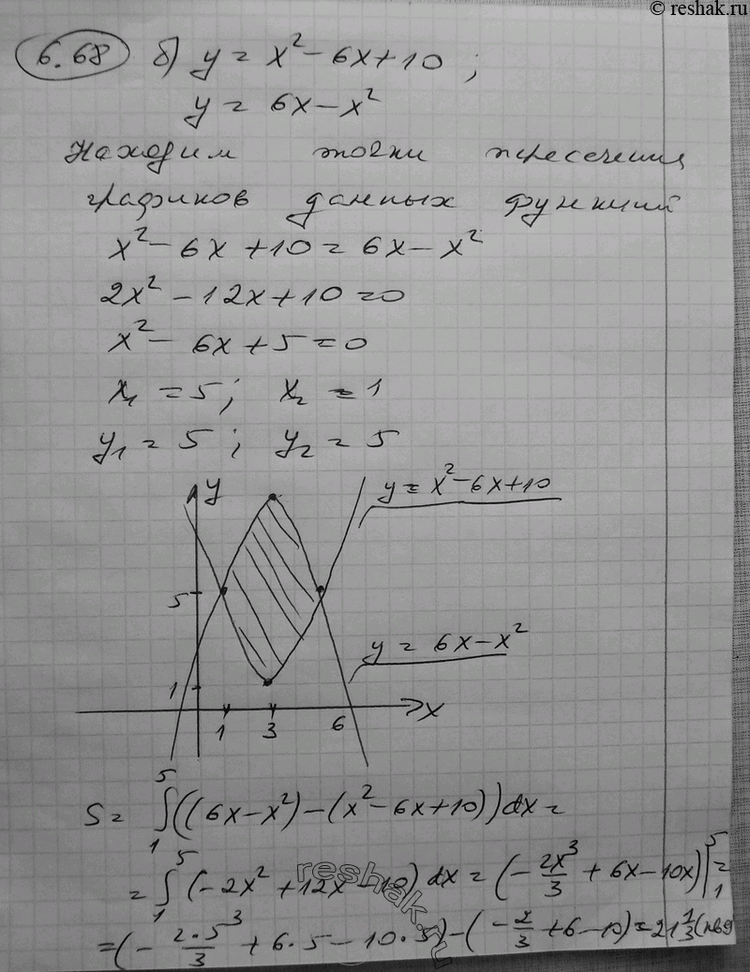 © reshak.ru
6.68 б) y = x² - 6x + 10 ;
y = 6x - x²
Находим точки пересечения
графиков данных функций
x² - 6x + 10 = 6x - x²
2x² - 12x + 10 = 0
x² - 6x + 5 = 0
x₁ = 5; x₂ = 1
y₁ = 5; y₂ = 5
y
y = x² - 6x + 10
5
y = 6x - x²
1
1 3 6 x
S = ∫₁⁵ ((6x - x²) - (x² - 6x + 10)) dx =
= ∫₁⁵ (-2x² + 12x - 10) dx = (- 2x³/3 + 6x - 10x) |₁⁵ =
= (- 2·5³/3 + 6·5 - 10·5) - (- 2/3 + 6 - 10) = 21 1/3 (кв
reshak.ru